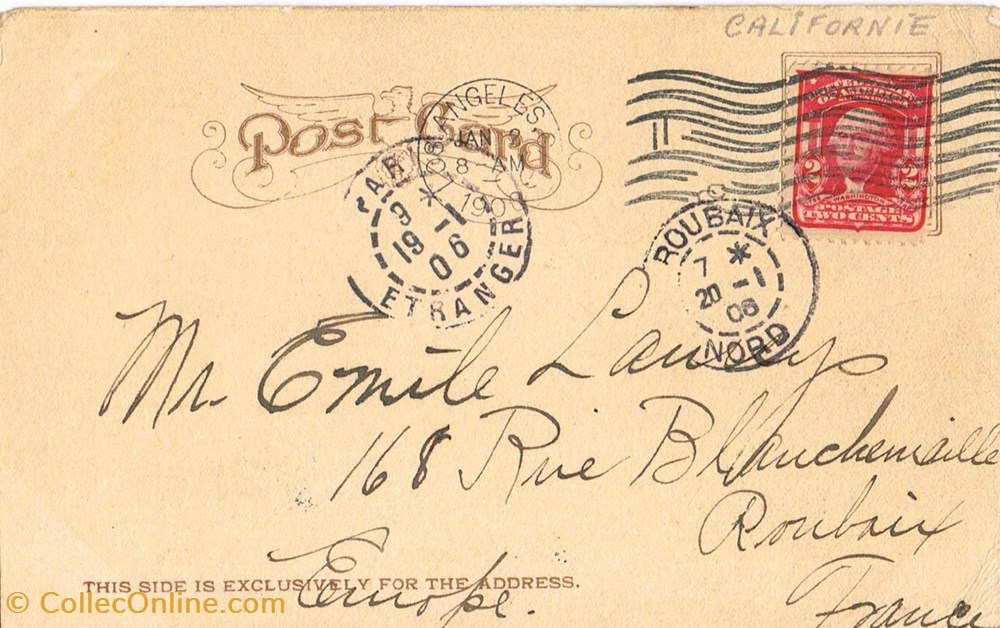 CALIFORNIE
Post Card
LOS ANGELES
JAN
8 AM
PARIS
9 *
19 -1
06
ETRANGER
ROUBAIX
7 *
20 -1
06
NORD
2 2
WASHINGTON
POSTAGE
TWO CENTS
Mr. Emile
168 Rue Blanchemaille
Roubaix
Europe. France
THIS SIDE IS EXCLUSIVELY FOR THE ADDRESS.
© CollecOnline.com